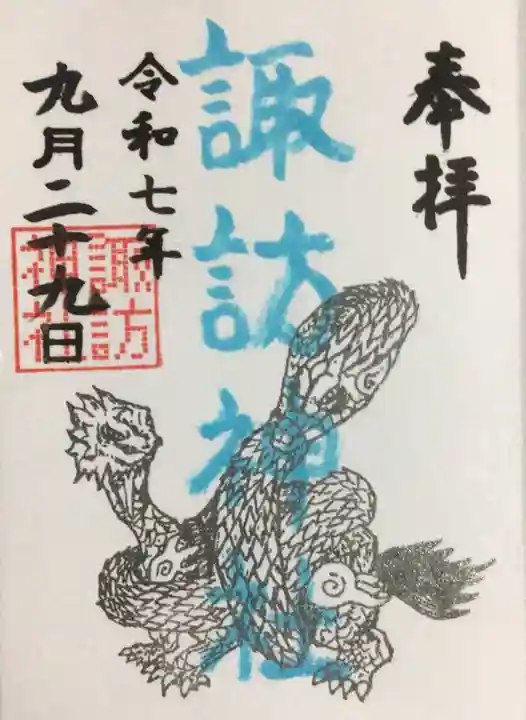 奉拝
諏訪神社
令和七年
九月二十九日
諏訪
神社